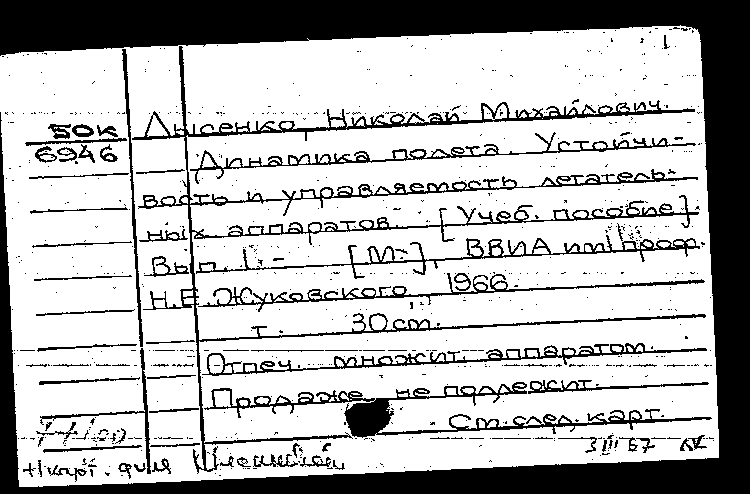 50к Лысенко, Николай Михайлович.
6946 Динамика полета. Устойчи-
вость и управляемость летатель-
ных аппаратов. [Учеб. пособие].
Вып. 1.- [М.], ВВИА им. проф.
Н.Е.Жуковского, 1966.
т. 30см.
Отпеч. множит. аппаратом.
Продаже не подлежит.
См. след. карт.
3 III 67